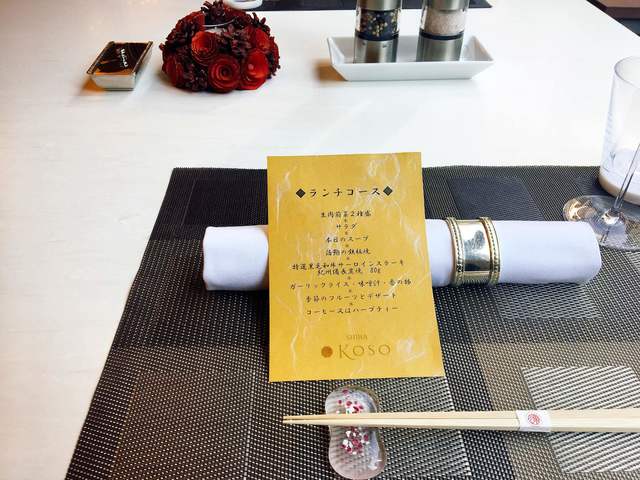 ◆ランチコース◆
生肉前菜2種盛
※
サラダ
※
本日のスープ
※
活鮑の鉄板焼
※
特選黒毛和牛サーロインステーキ
紀州備長炭焼 80g
※
ガーリックライス・味噌汁・香の物
※
季節のフルーツとデザート
※
コーヒー又はハーブティー
SHIBA
KOSO